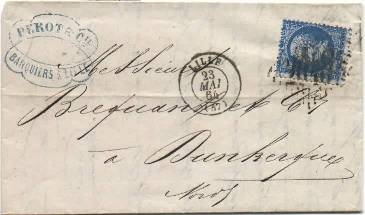 PEROT & Cie
BANQUIERS À LILLE
LILLE
23
MAI
(57)
Messieurs
et Cie
à Dunkerque
Nord